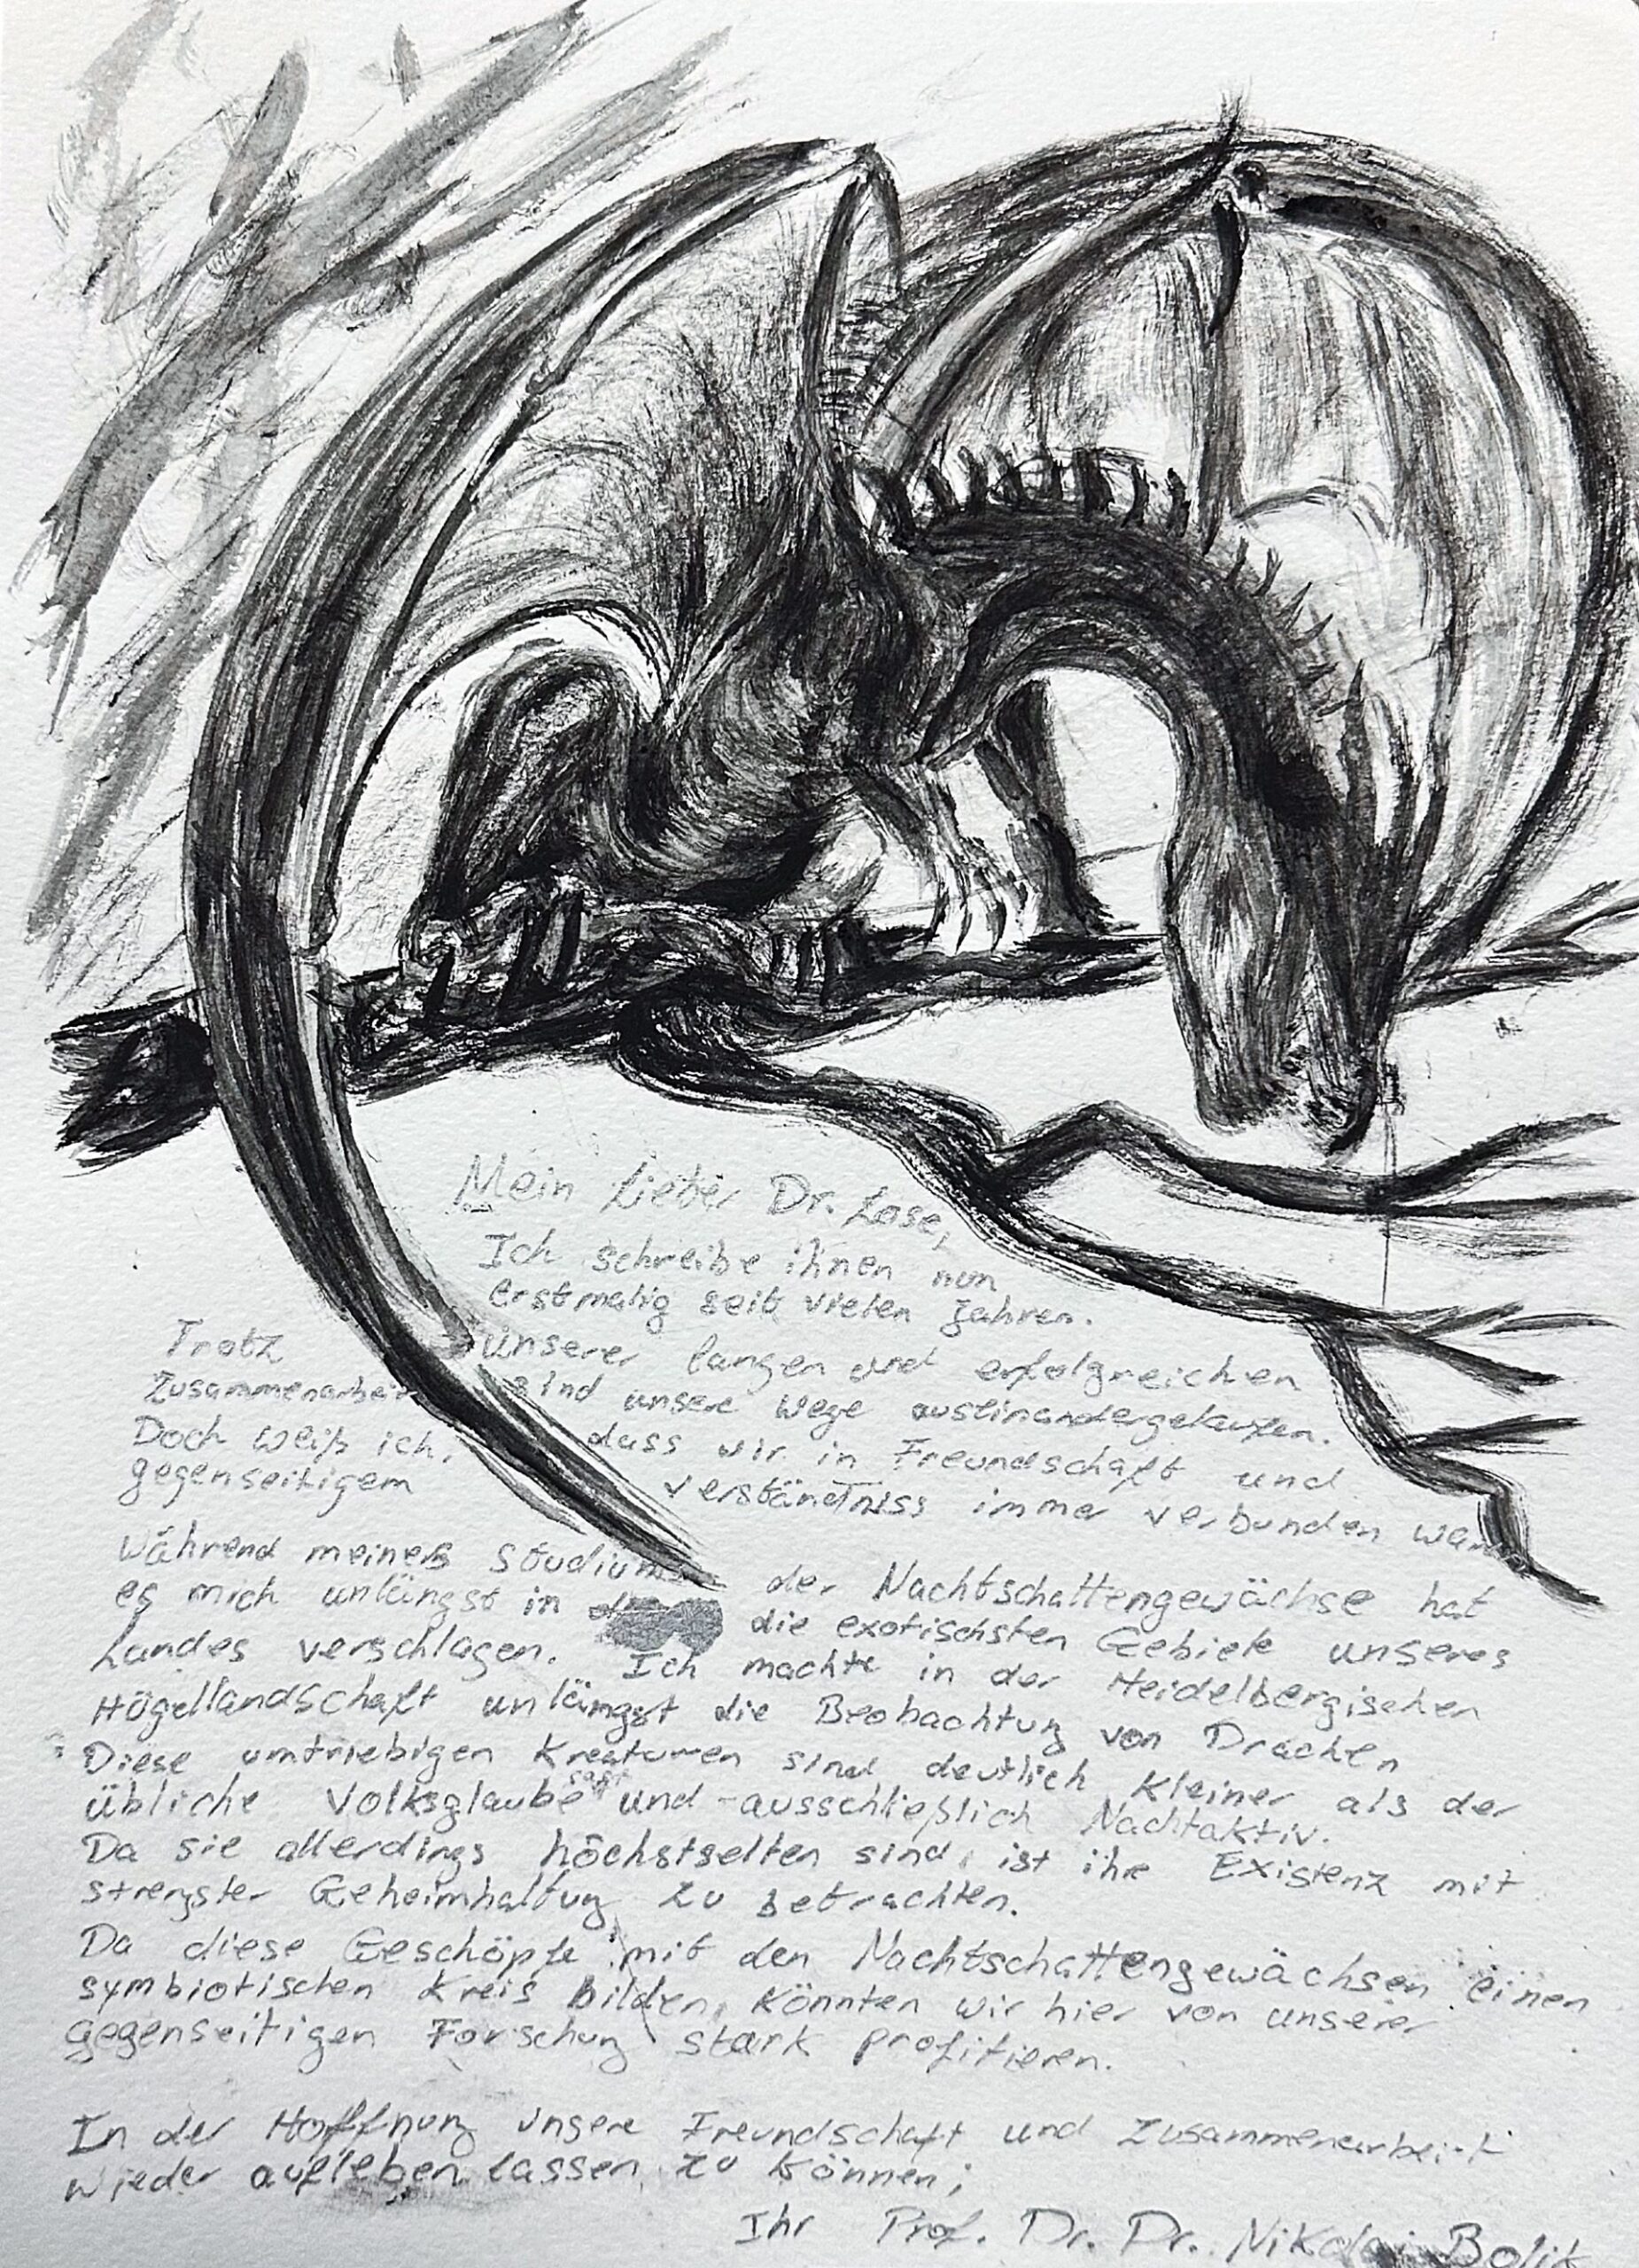 Mein Lieber Dr. Lose,
Ich schreibe ihnen nun
erstmalig seit vielen Jahren.
Trotz unserer langen und erfolgreichen
Zusammenarbeit sind unsere Wege auseinandergelaufen.
Doch weiß ich, dass wir in Freundschaft und
gegenseitigem Verständniss immer verbunden waren
Während meines Studiums der Nachtschattengewächse hat
es mich unlängst in die exotischsten Gebiete unseres
Landes verschlagen. Ich machte in der Heidelbergischen
Hügellandschaft unlängst die Beobachtung von Drachen
Diese umtriebigen Kreaturen sind deutlich kleiner als der
übliche Volksglaube sagt und ausschließlich Nachtaktiv.
Da sie allerdings höchstselten sind, ist ihre Existenz mit
strengster Geheimhaltung zu betrachten.
Da diese Geschöpfe mit den Nachtschattengewächsen einen
symbiotischen Kreis bilden, könnten wir hier von unserer
gegenseitigen Forschung stark profitieren.
In der Hoffnung unsere Freundschaft und Zusammenarbeit
wieder aufleben lassen zu können;
Ihr Prof. Dr. Dr. Nikolai Bolik